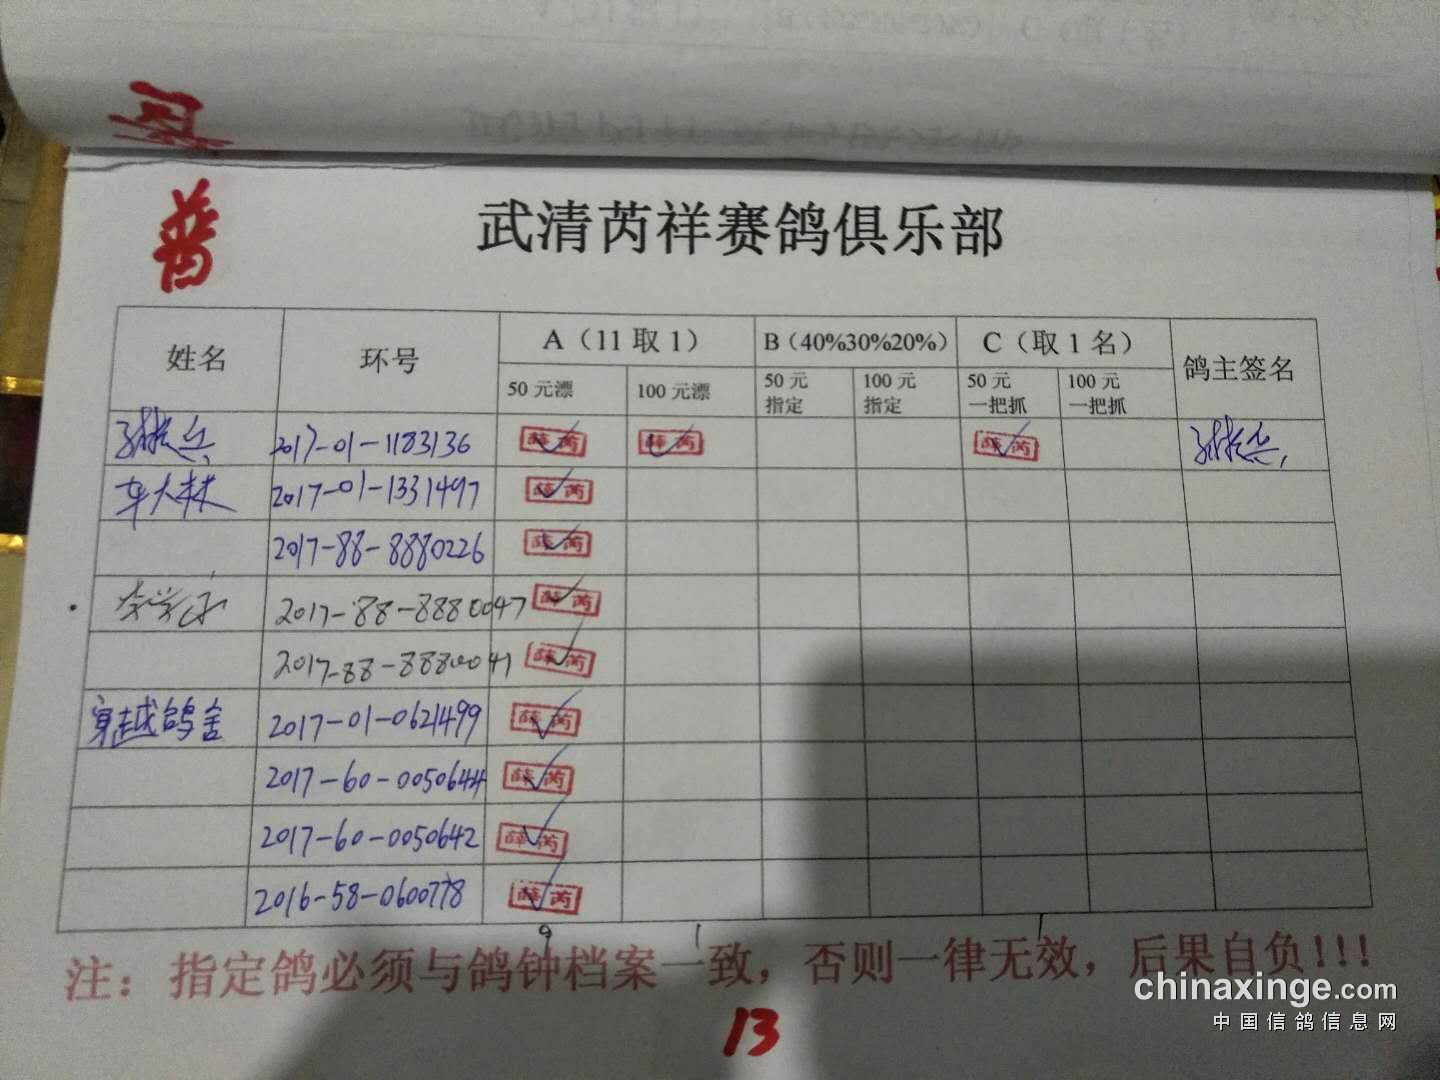 普
武清芮祥赛鸽俱乐部
姓名 环号 A（11 取 1） B（40%30%20%） C（取 1 名） 鸽主签名
50 元漂 100 元漂 50 元指定 100 元指定 50 元一把抓 100 元一把抓
2017-01-1183136 薛芮 薛芮 薛芮
车大林 2017-01-1331497 薛芮
2017-88-8880226 薛芮
2017-88-8880047 薛芮
2017-88-8880041 薛芮
穿越鸽舍 2017-01-0621499 薛芮
2017-60-0050644 薛芮
2017-60-0050642 薛芮
2016-58-0600778 薛芮
9 1 1
注：指定鸽必须与鸽钟档案一致，否则一律无效，后果自负!!!
13
chinaxinge.com
中国信鸽信息网